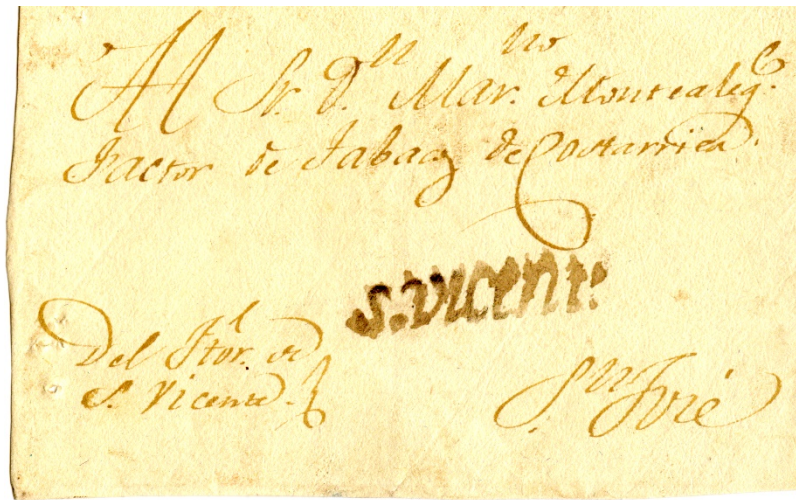 Al Sr. Dn Marno Montealege.
Factor de Tabacs de Costarrica.
S. VICENTE
Del Ftor. de
S. Vicente.
Sn José